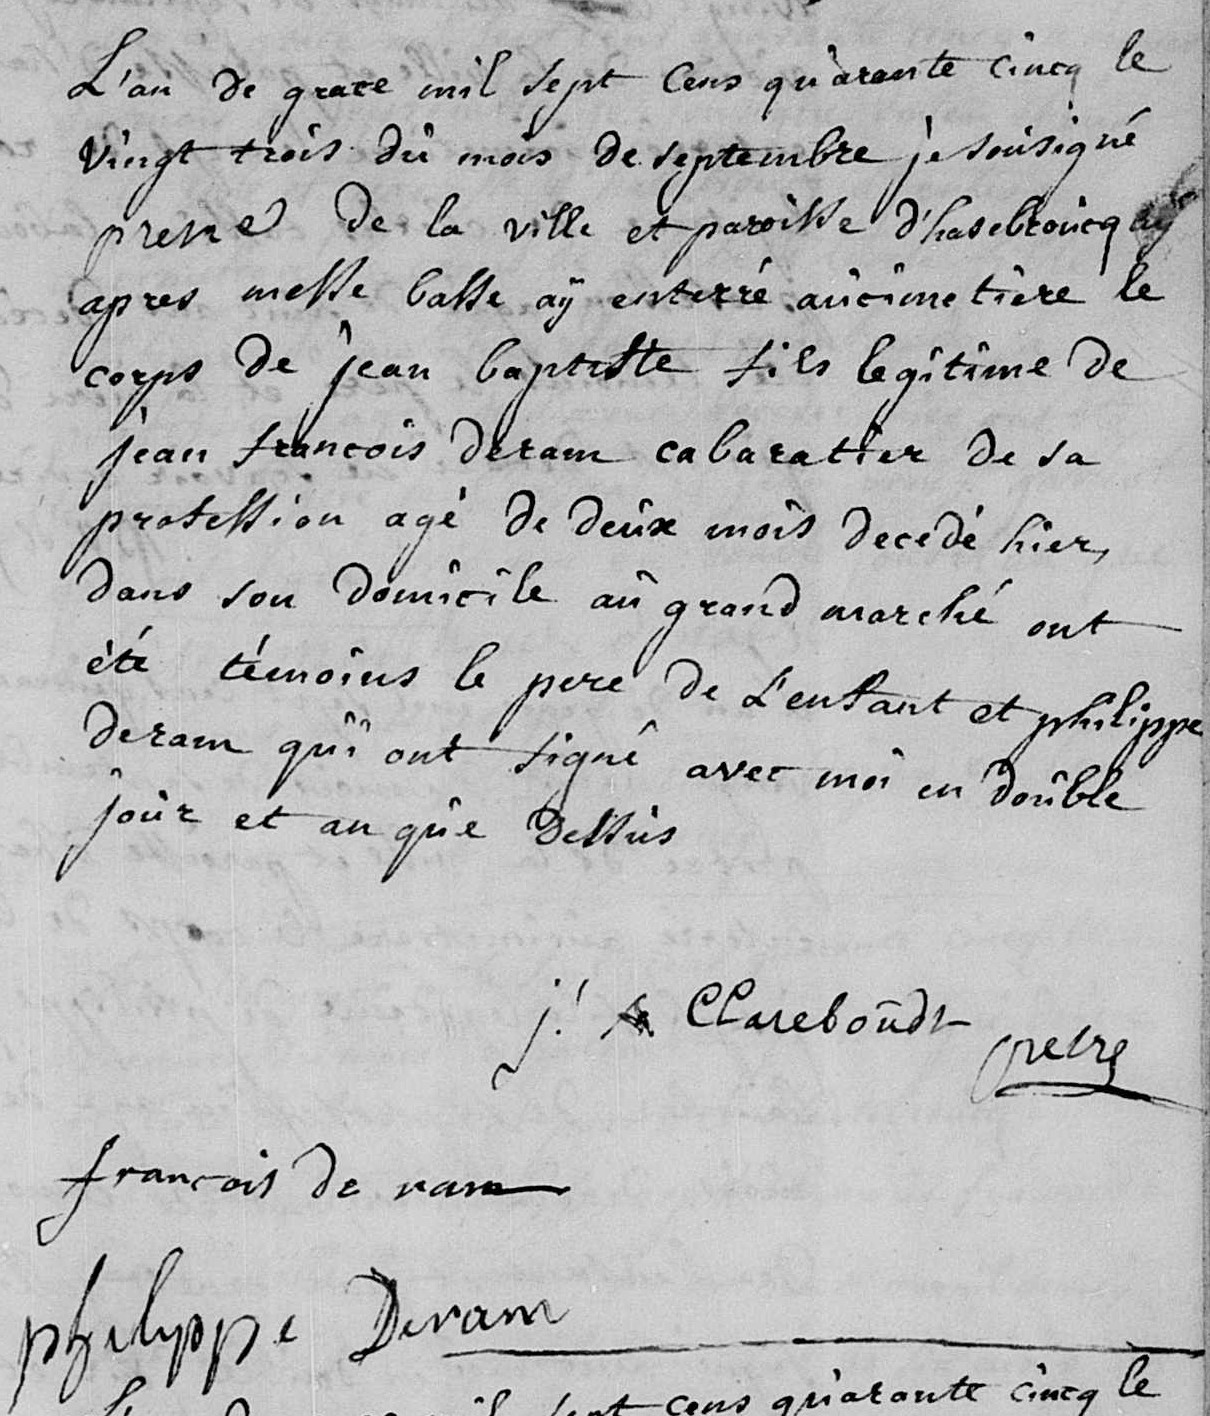 L'an de grace mil sept Cens quarante cincq le
vingt trois du mois de septembre je sousigné
pretre de la ville et paroisse d'hasebroucq ay
apres messe basse aÿ enterré au cimetiere le
corps de jean baptiste fils legitime de
jean francois deram cabaratier de sa
profession agé de deux mois decedé hier,
dans son domicile au grand marché ont
été témoins le pere de L'enfant et philippe
deram qui ont signé avec moi en double
jour et an que dessus
j: Clareboudt pretre
francois de ram
philippe Deram
sept cens quarante cincq le